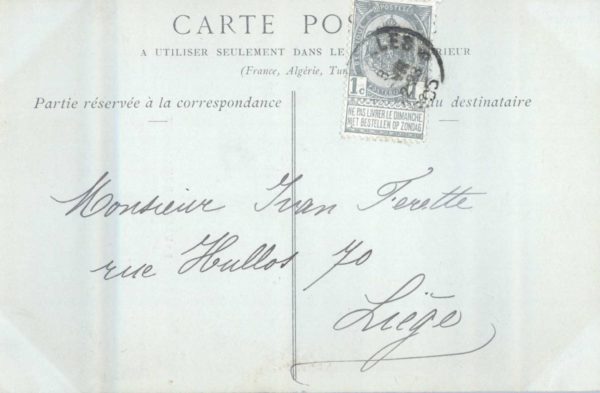 CARTE POS
A UTILISER SEULEMENT DANS LE RIEUR
(France, Algérie, Tun
Partie réservée à la correspondance
du destinataire
POSTES
1c 1c
NE PAS LIVRER LE DIMANCHE
NIET BESTELLEN OP ZONDAG
LES
Monsieur Ivan Ferette
rue Hullos 70
Liège